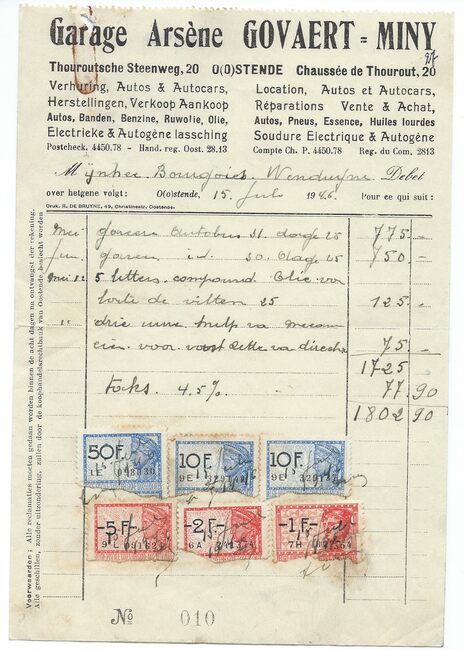 Garage Arsène GOVAERT = MINY
27
Thouroutsche Steenweg, 20 O(O)STENDE Chaussée de Thourout, 20
Verhuring, Autos & Autocars,
Herstellingen, Verkoop Aankoop
Autos, Banden, Benzine, Ruwolie, Olie,
Electrieke & Autogène lassching
Postcheck. 4450.78 - Hand. reg. Oost. 28.13
Location, Autos et Autocars,
Réparations Vente & Achat,
Autos, Pneus, Essence, Huiles lourdes
Soudure Electrique & Autogène
Compte Ch. P. 4450.78 Reg. du Com. 2813
Mijnheer Bourgois Wenduyne Debet
over hetgene volgt : O(o)stende, 15 Juli 1946. Pour ce qui suit :
Druk. R. DE BRUYNE, 49, Christinastr. Oostende.
Mei gareeren Autobus 31 dage 25 775 . -
Jun. garen id 30 dage 25 750 . -
5 litters compound Olie voor
boite de vitten 25 125 . -
drie uure hulp va mecan
cien voor 75 . -
1725
taks 4.5% 77 90
1802 90
50F. 10F. 10F.
1E 098030 9E 9E
-5F- -2F- -1F-
6A
No 010
Voorwaarden : Alle reclamaties moeten gedaan worden binnen de acht dagen na ontvangst der rekening.
Alle geschillen, zonder uitzondering, zullen door de koophandelsrechtbank van Oostende beslecht worden